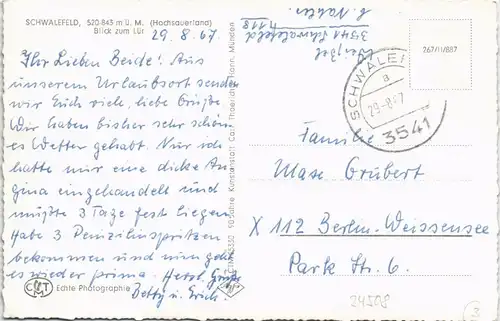 SCHWALEFELD, 520-843 m ü. M. (Hochsauerland)
Blick zum Lür
29. 8. 67
Ihr Lieben Beide! Aus
unserem Urlaubsort senden
wir Euch viele liebe Grüße.
Wir haben bisher sehr schön-
es Wetter gehabt. Nur ich
hatte mir eine dicke An-
gina eingehandelt und
mußte 3 Tage fest liegen
Habe 3 Penizilinspritzen
bekommen und nun geht
es wieder prima. Herzl. Grüße
Betty u. Erich.
C&T Echte Photographie
Schöning
3541 Schwalefeld
SCHWALEFELD
a
29.-8.67
3541
267/11/887
Familie
Max Grubert
X 112 Berlin-Weissensee
Park Str. 6.
24508
3